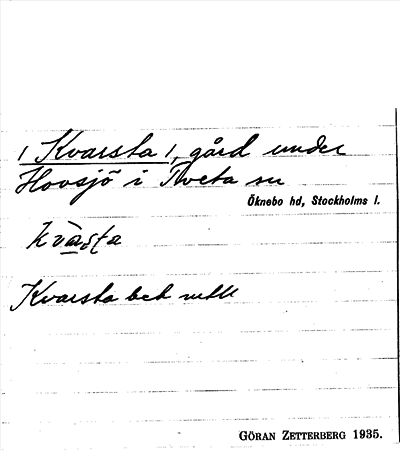 ( Kvarsta ), gård under
Hovsjö i Tveta sn
Öknebo hd, Stockholms l.
kvàsta
Kvarsta bet
GÖRAN ZETTERBERG 1935.